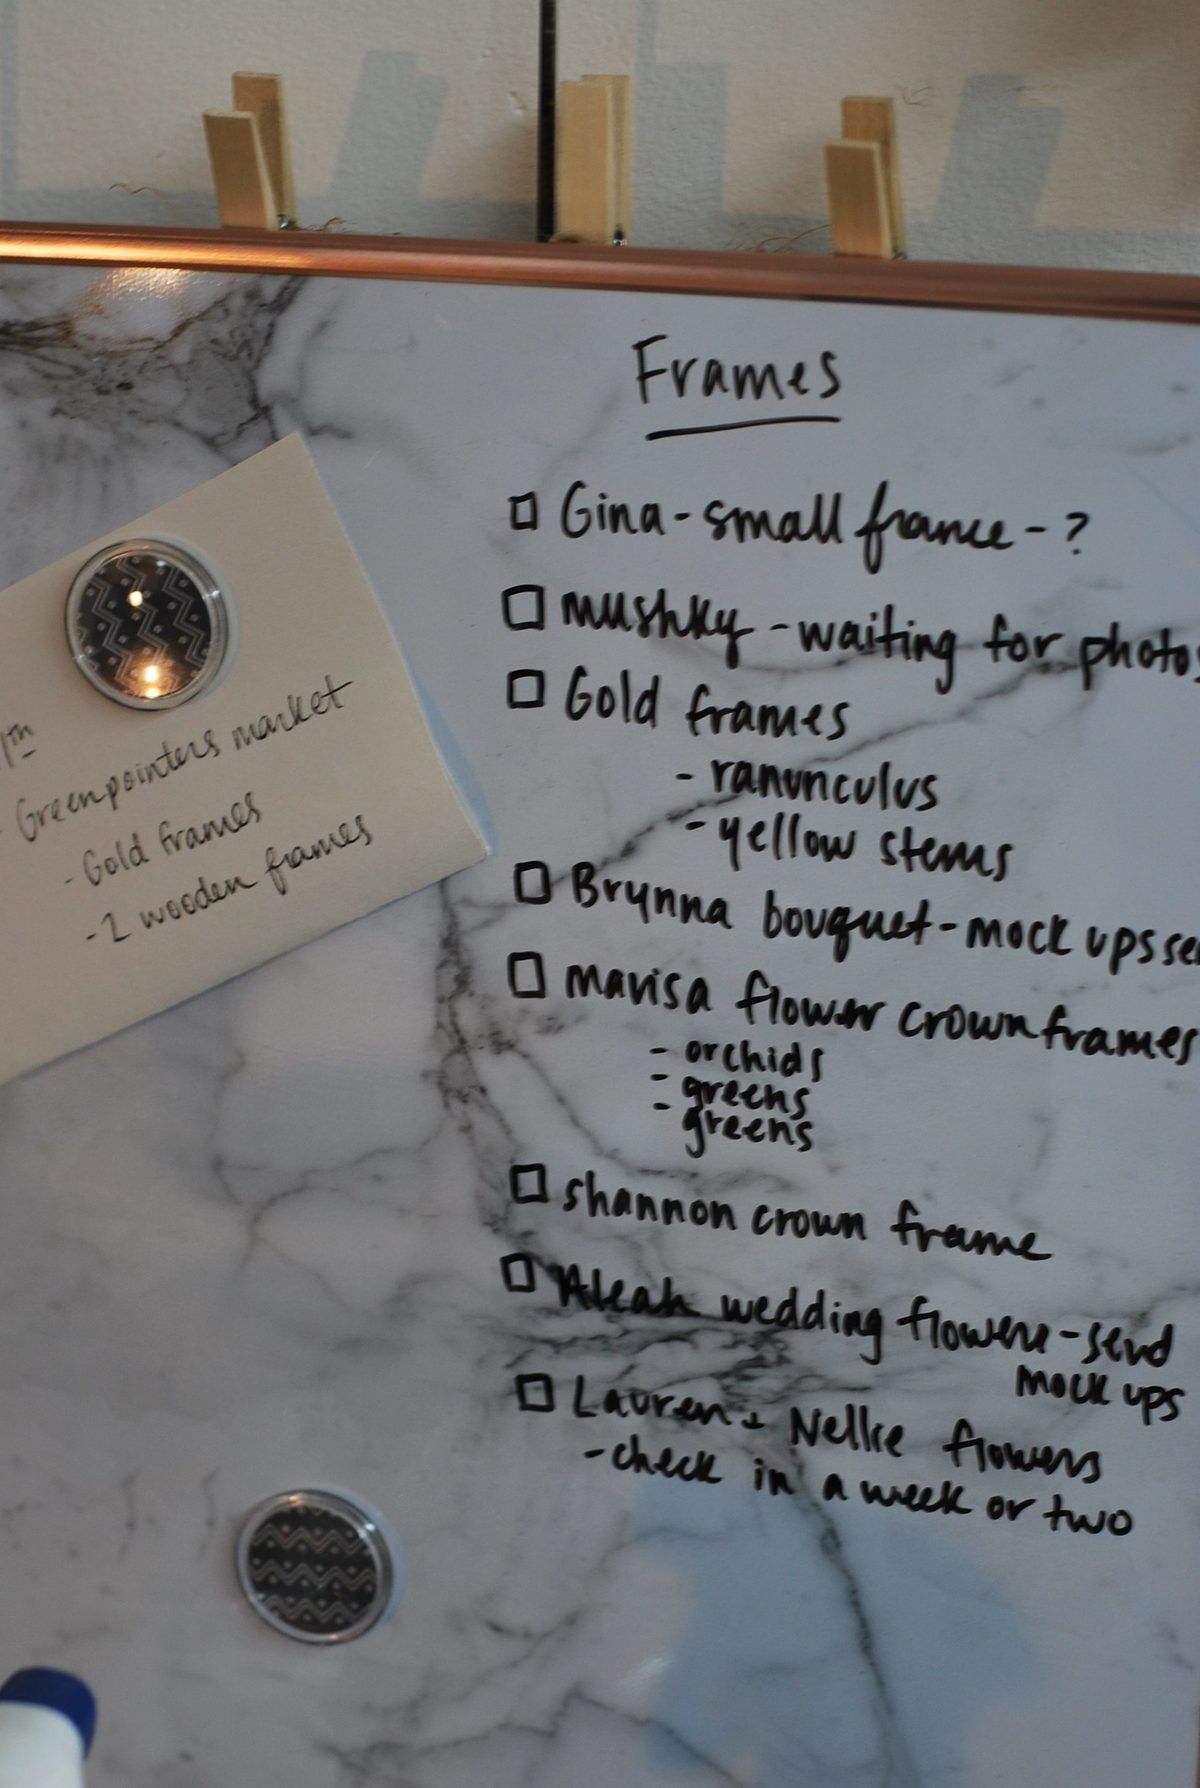 Frames
□ Gina - small france - ?
□ mushky - waiting for photos
□ Gold frames
- ranunculus
- yellow stems
□ Brynna bouquet - mock ups
□ marisa flower crown frames
- orchids
- greens
- greens
□ shannon crown frame
□ Aleah wedding flowers - send
mock ups
□ Lauren + Nellie flowers
- check in a week or two
Greenpointers market
- Gold frames
- 2 wooden frames